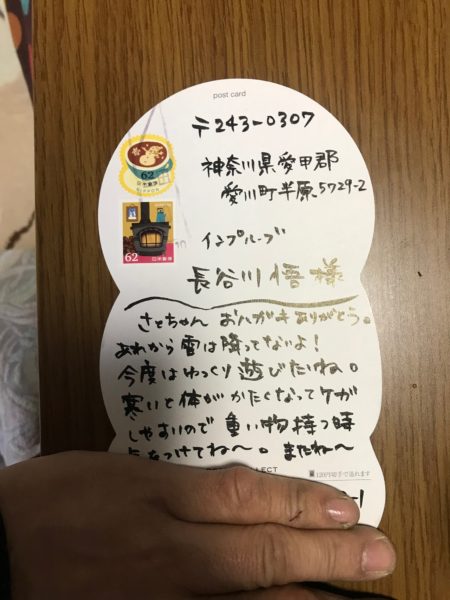 post card
〒243-0307
神奈川県愛甲郡
愛川町半原5729-2
インプルーブ
長谷川悟様
62
日本郵便
NIPPON
62
日本郵便
さとちゃん おハガキありがとう。
あれから雪は降ってないよ!
今度はゆっくり遊びたいね。
寒いと体がかたくなってケガ
しやすいので重い物持つ時
気をつけてね〜。またね〜
LECT
120円切手で送れます